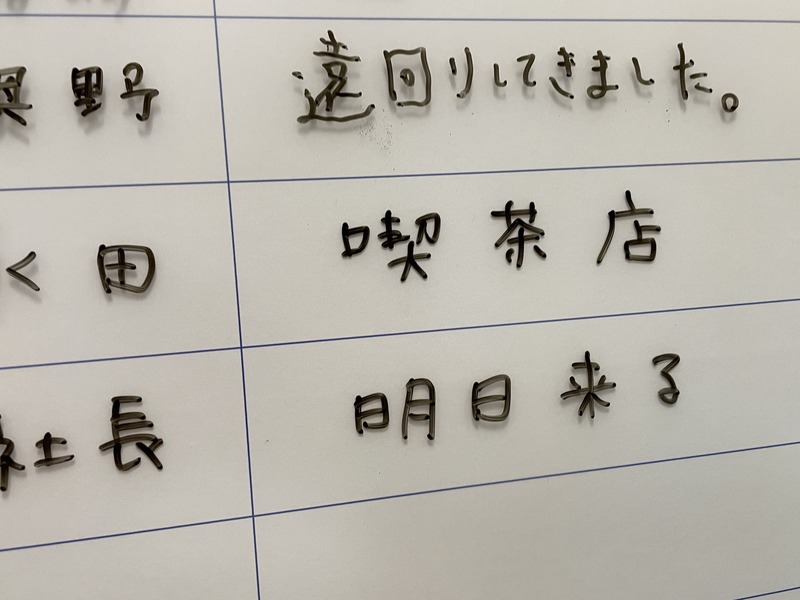 奥野 遠回りしてきました。
く田 喫茶店
社長 明日来る